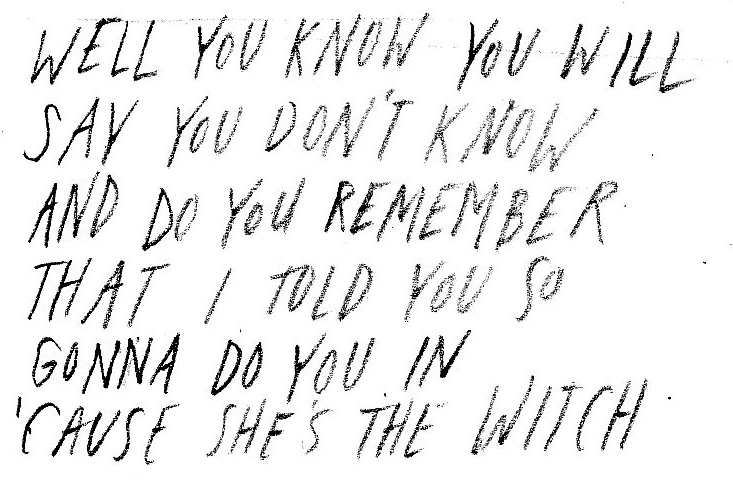 WELL YOU KNOW YOU WILL
SAY YOU DON'T KNOW
AND DO YOU REMEMBER
THAT I TOLD YOU SO
GONNA DO YOU IN
'CAUSE SHE'S THE WITCH